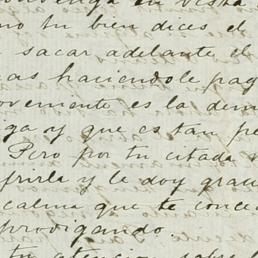 convenga en vista
no tu bien dices el
sacar adelante el
cas haciendole pag
ovemiente es la dem
iga y que es tan pe
Pero por tu citada
frirla y le doy grac
calma que te conce
prodigando.
tu atencion sobre l